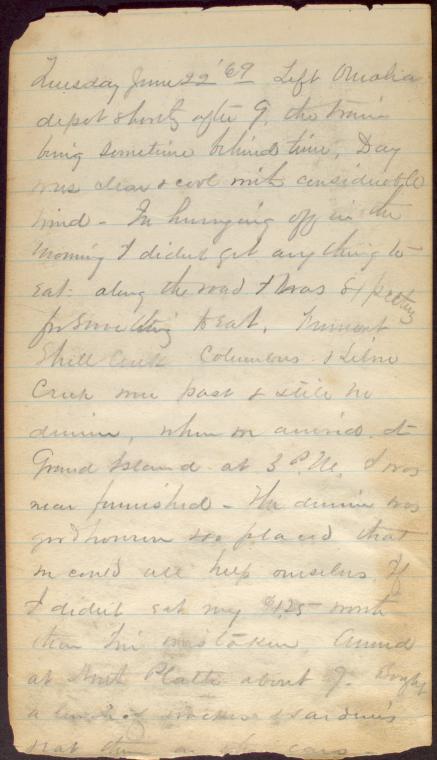 Tuesday June 22 '69 Left Omaha
depot shortly after 9, the train
being sometime behind time, Day
was clear & cool with considerable
wind - In hurrying off in the
morning I didnt get any thing to
eat along the road & was expecting
for something to eat, Fremont
Shell Creek Columbus & Silver
Creek were past & still no
dinner, when we arrived at
Grand Island at 3 P.M. I was
near furnished - The dinner was
good however & so placed that
we could all help ourselves If
I didnt eat my $1.25 worth
then Im mistaken Arrived
at North Platte about 9. Bought
a lunch of crackers & sardines
& eat them on the cars -